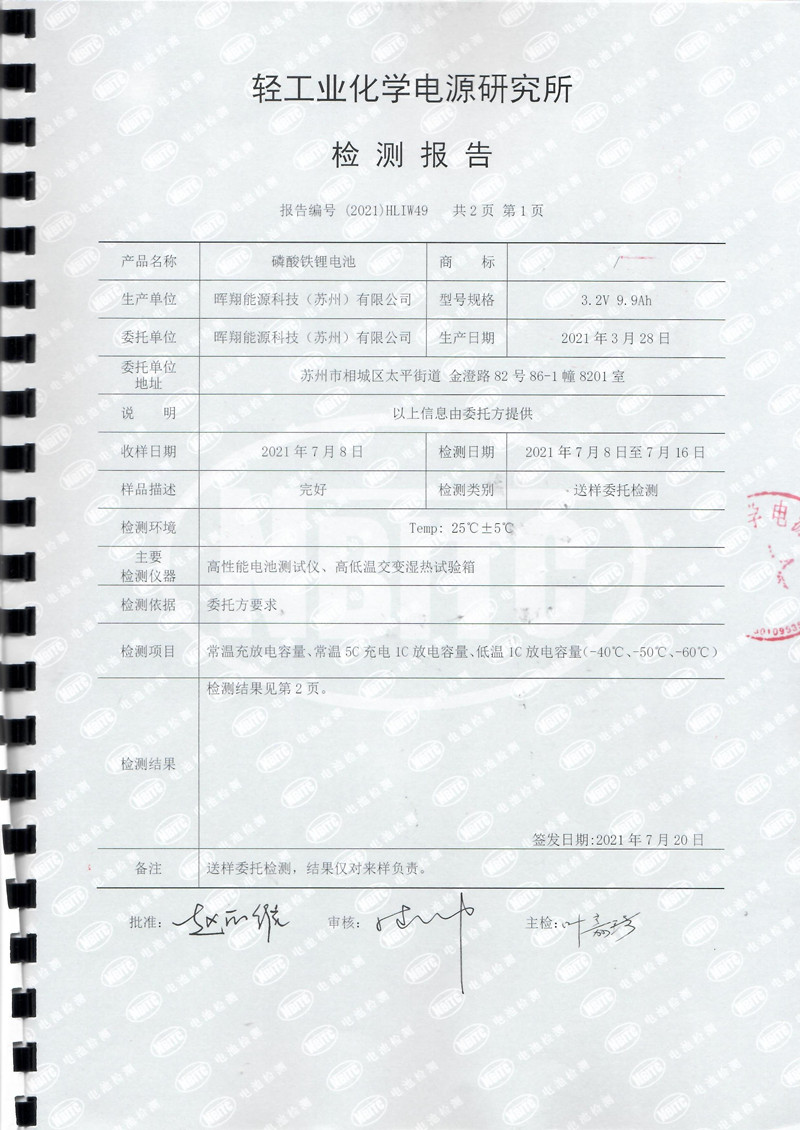 轻工业化学电源研究所
检测报告
报告编号 (2021)HLIW49 共2页 第1页
产品名称 磷酸铁锂电池 商标 /
生产单位 晖翔能源科技（苏州）有限公司 型号规格 3.2V 9.9Ah
委托单位 晖翔能源科技（苏州）有限公司 生产日期 2021年3月28日
委托单位
地址 苏州市相城区太平街道 金澄路82号86-1幢8201室
说明 以上信息由委托方提供
收样日期 2021年7月8日 检测日期 2021年7月8日至7月16日
样品描述 完好 检测类别 送样委托检测
检测环境 Temp: 25℃±5℃
主要
检测仪器 高性能电池测试仪、高低温交变湿热试验箱
检测依据 委托方要求
检测项目 常温充放电容量、常温5C充电1C放电容量、低温1C放电容量(-40℃、-50℃、-60℃)
检测结果 检测结果见第2页。
签发日期:2021年7月20日
备注 送样委托检测，结果仅对来样负责。
批准: 审核: 主检:
NBITC 电池检测
学电